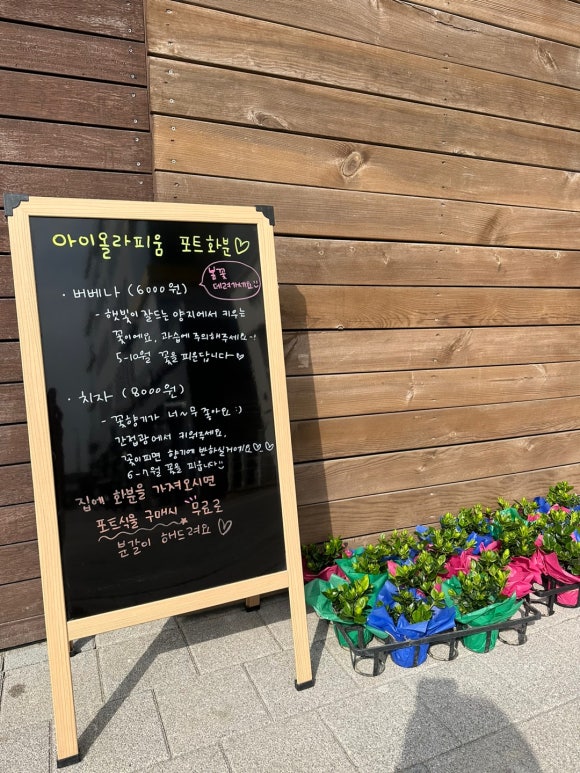 아이올라피움 포트화분♡
· 버베나 (6000원)
봄꽃
데려가세요!!
- 햇빛이 잘드는 양지에서 키우는
꽃이에요. 과습에 주의해주세요~!
5-10월 꽃을 피운답니다~♡
· 치자 (8000원)
- 꽃향기가 너~무 좋아요 :)
간접광에서 키워주세요.
꽃이피면 향기에 반하실거예요♡♡
6-7월 꽃을 피웁니다!!
집에 화분을 가져오시면
포트식물 구매시 무료로
분갈이 해드려요 ♡